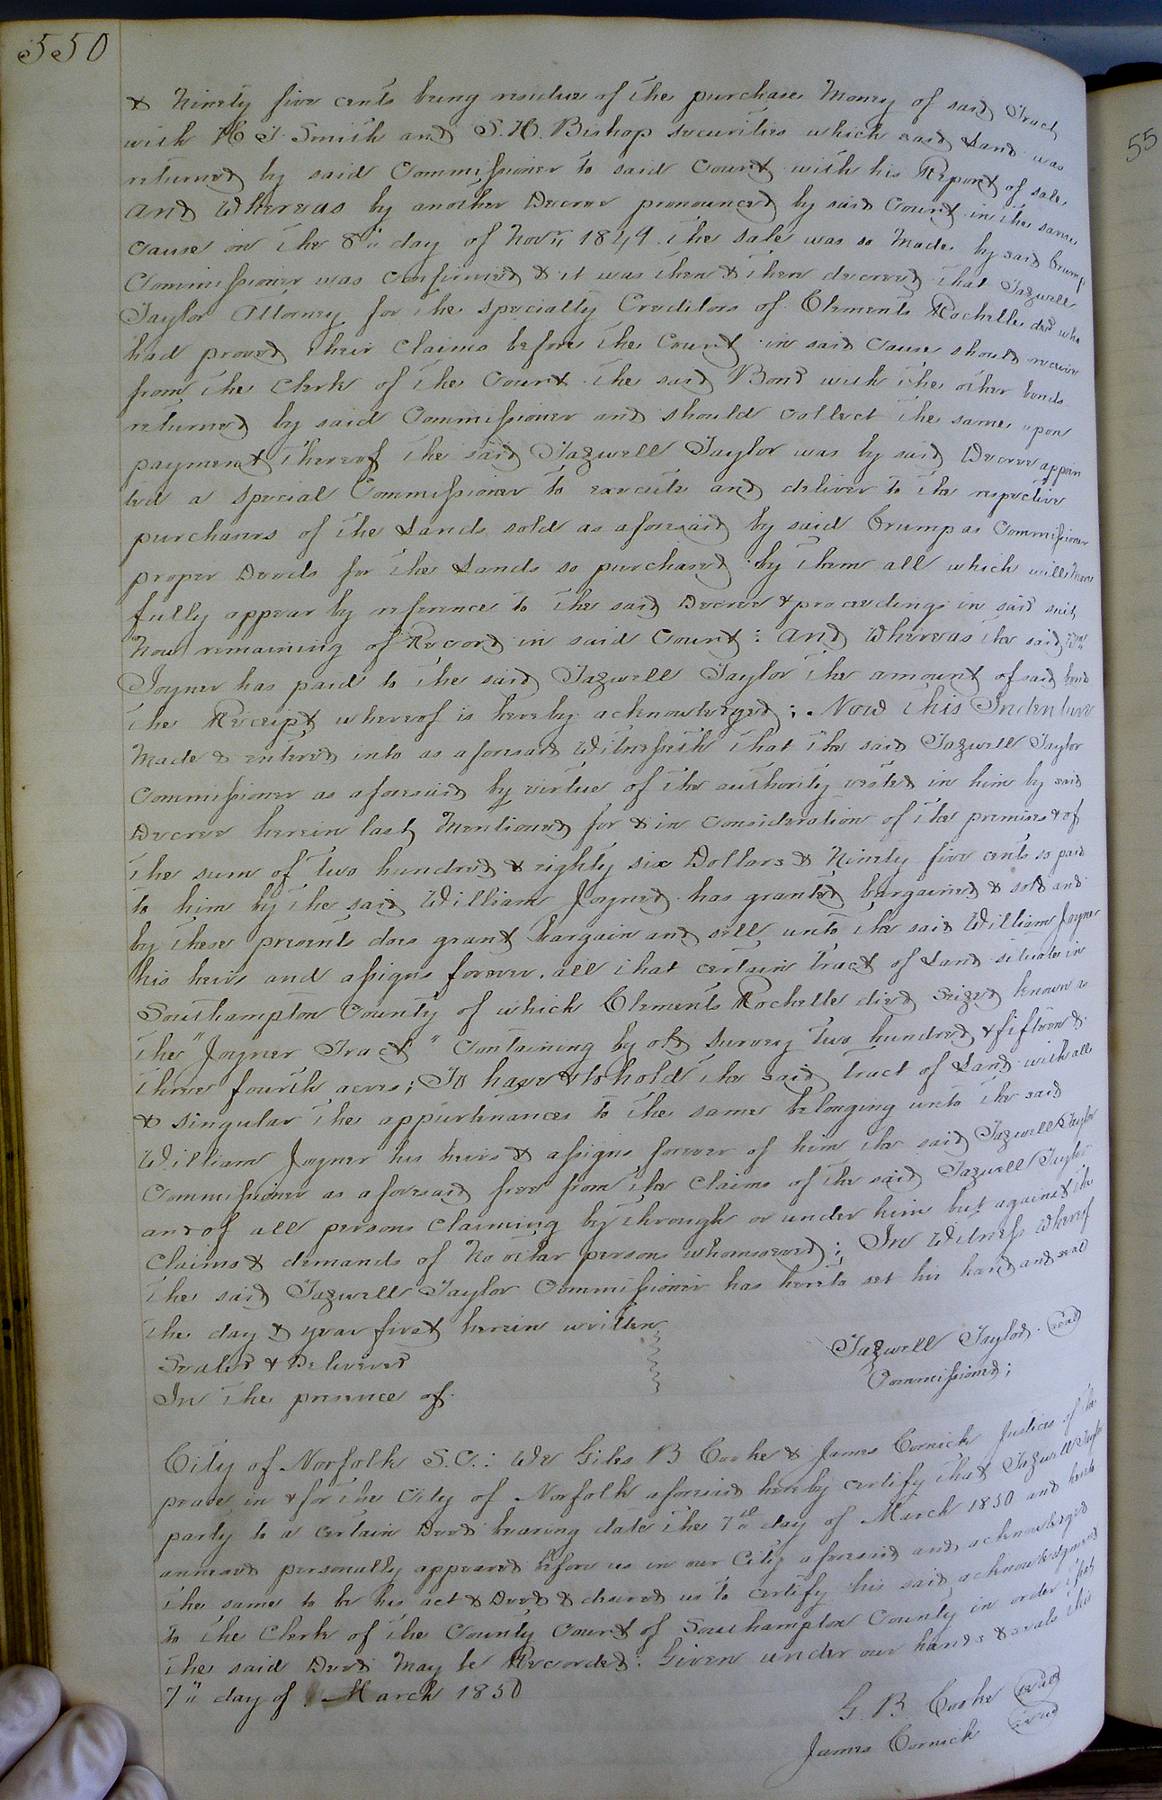 550
& Ninety five cents being residue of the purchase Money of said Tract
with H T Smith and S. H. Bishop securities which said Land was
returned by said Commissioner to said Court with his Report of sale,
and Whereas by another Decree pronounced by said Court in the same
Cause on the 8th day of Novr 1849 the sale was so Made by said Crump
Commissioner was confirmed & it was then & then decreed that Tazwell
Taylor Attorney for the specialty Creditors of Clements Rochelle decd who
had proved their Claims before the Court in said Cause should receive
from the Clerk of the Court the said Bond with the other bonds
returned by said Commissioner and should collect the same upon
payment thereof the said Tazwell Taylor was by said Decree appoin
ted a special Commissioner to execute and deliver to the respective
purchasers of the Lands sold as aforesaid by said Crump as Commissioner
proper Deeds for the Lands so purchased by them all which will more
fully appear by reference to the said Decree & proceedings in said suit,
Now remaining of Record in said Court: and Whereas the said Wm
Joyner has paid to the said Tazwell Taylor the amount of said bond
the Receipt whereof is hereby acknowledged; Now this Indenture
Made & entered into as aforesaid Witnesseth that the said Tazwell Taylor
Commissioner as aforesaid by virtue of the authority vested in him by said
Decree herein last Mentioned for & in consideration of the premises & of
the sum of two hundred & eighty six Dollars & Ninety five cents so paid
to him by the said William Joyner has granted bargained & sold and
by these presents does grant bargain and sell unto the said William Joyner
his heirs and assigns forever, all that certain tract of Land situate in
Southampton County of which Clements Rochelle died seized known as
the "Joyner Tract" Containing by old Survey Two hundred & fifteen &
three fourth acres; To have & to hold the said tract of Land with all
& singular the appurtenances to the same belonging unto the said
William Joyner his heirs & assigns forever of him the said Tazwell Taylor
Commissioner as aforesaid free from the Claims of the said Tazwell Taylor
and of all persons Claiming by through or under him but against the
Claims & demands of No other persons whomsoever; In Witness Whereof
the said Tazwell Taylor Commissioner has hereto set his hand and seal
the day & year first herein written
Sealed & Delivered
In the presence of
Tazwell Taylor seal
Commissioner;
City of Norfolk S.C.: We Giles B Cooke & James Cornick Justices of the
peace in & for the City of Norfolk aforesaid hereby certify that Tazwell Taylor
party to a certain Deed bearing date the 7th day of March 1850 and hereto
annexed personally appeared before us in our City aforesaid and acknowledged
the same to be his act & Deed & desired us to certify his said acknowledgment
to the Clerk of the County Court of Southampton County in order that
the said Deed May be Recorded: Given under our hands & seals this
7" day of March 1850
G. B. Cooke seal
James Cornick seal
55